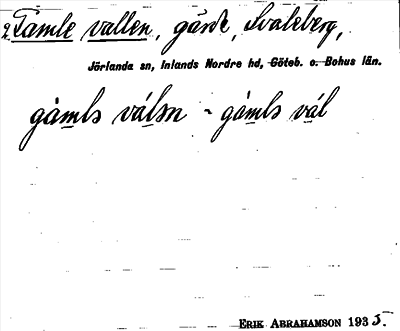 2. Gamle vallen, gärde, Svaleberg,
Jörlanda sn, Inlands Nordre hd, Göteb. o. Bohus län.
gàmlə válən - gàmlə vál
ERIK ABRAHAMSON 1935.